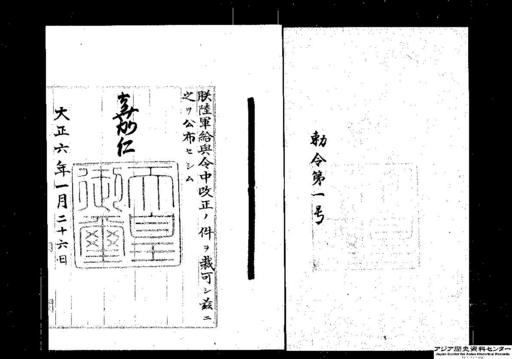 勅令第一号
朕陸軍給與令中改正ノ件ヲ裁可シ茲ニ
之ヲ公布セシム
嘉仁
天皇御璽
大正六年一月二十六日
アジア歴史資料センター
Japan Center for Asian Historical Records